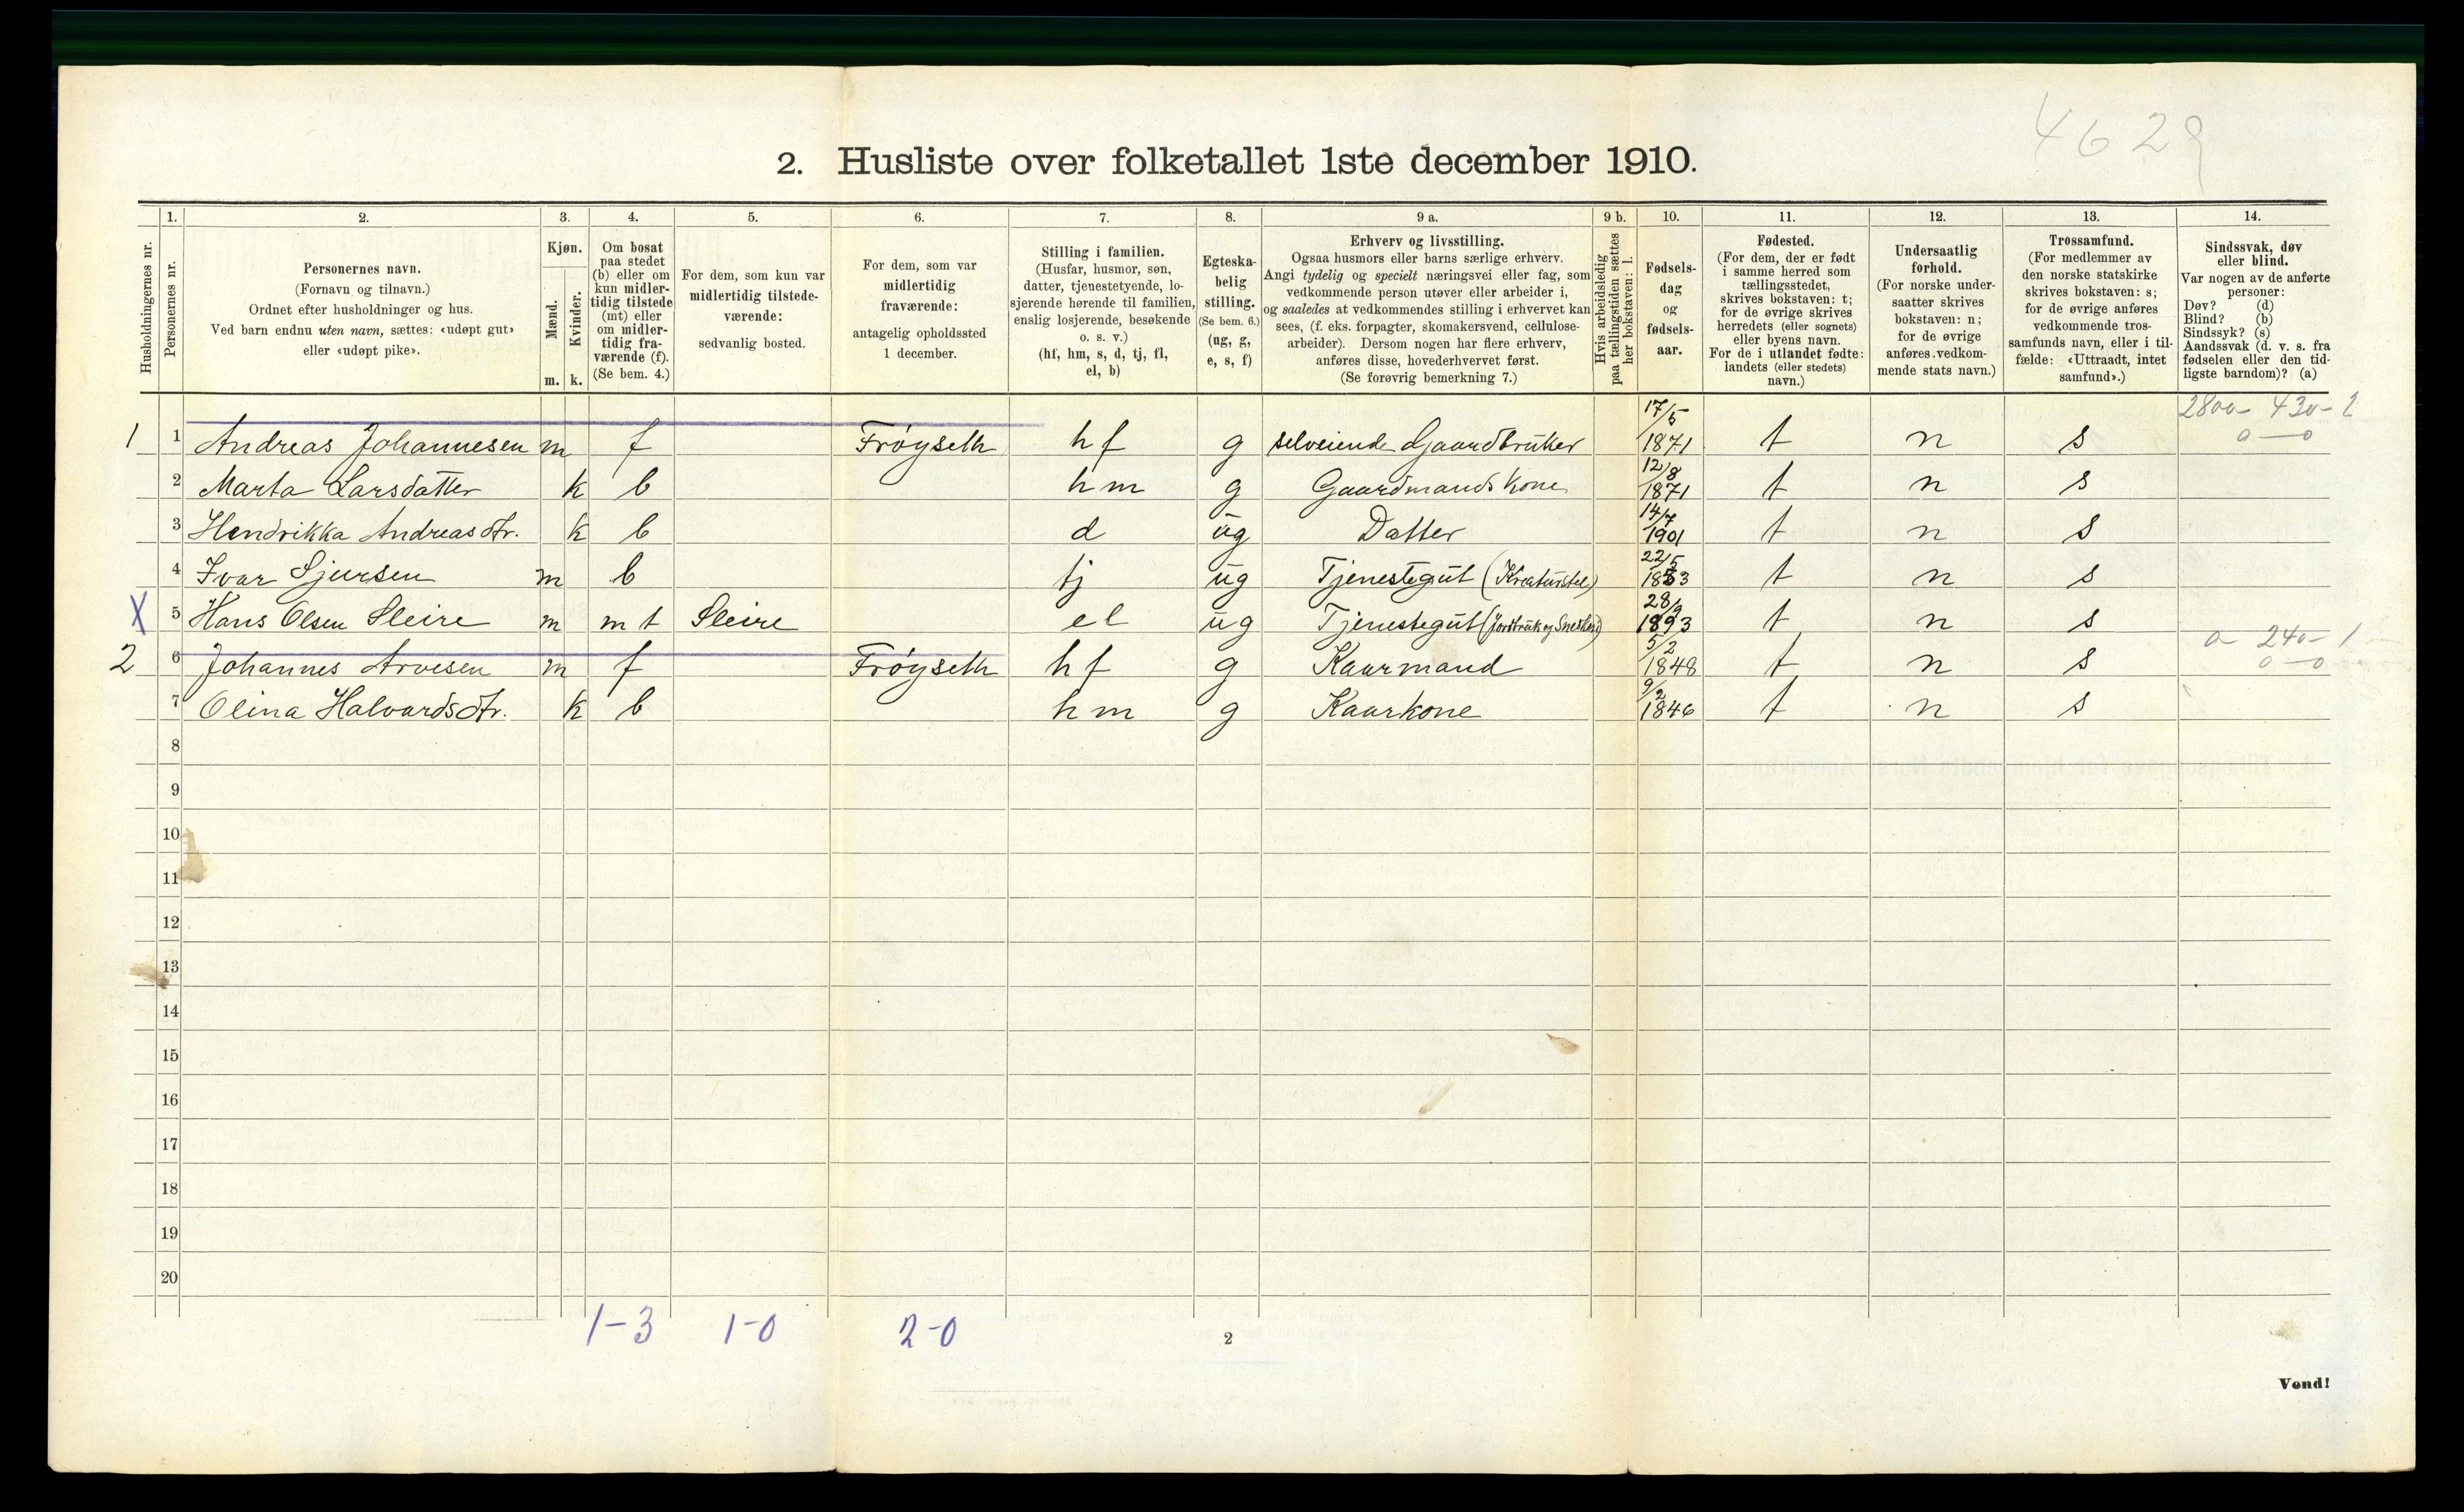 4629
2. Husliste over folketallet 1ste december 1910.
Husholdningernes nr.
1. Personernes nr.
2. Personernes navn. (Fornavn og tilnavn.) Ordnet efter husholdninger og hus. Ved barn endnu uten navn, sættes: «udøpt gut» eller «udøpt pike».
3. Kjøn. Mænd. m. Kvinder. k.
4. Om bosat paa stedet (b) eller om kun midlertidig tilstede (mt) eller om midlertidig fraværende (f). (Se bem. 4.)
5. For dem, som kun var midlertidig tilstedeværende: sedvanlig bosted.
6. For dem, som var midlertidig fraværende: antagelig opholdssted 1 december.
7. Stilling i familien. (Husfar, husmor, søn, datter, tjenestetyende, losjerende hørende til familien, enslig losjerende, besøkende o. s. v.) (hf, hm, s, d, tj, fl, el, b)
8. Egteskabelig stilling. (Se bem. 6.) (ug, g, e, s, f)
9 a. Erhverv og livsstilling. Ogsaa husmors eller barns særlige erhverv. Angi tydelig og specielt næringsvei eller fag, som vedkommende person utøver eller arbeider i, og saaledes at vedkommendes stilling i erhvervet kan sees, (f. eks. forpagter, skomakersvend, cellulosearbeider). Dersom nogen har flere erhverv, anføres disse, hovederhvervet først. (Se forøvrig bemerkning 7.)
9 b. Hvis arbeidsledig paa tællingstiden sættes her bokstaven: l.
10. Fødselsdag og fødselsaar.
11. Fødested. (For dem, der er født i samme herred som tællingsstedet, skrives bokstaven: t; for de øvrige skrives herredets (eller sognets) eller byens navn. For de i utlandet fødte: landets (eller stedets) navn.)
12. Undersaatlig forhold. (For norske undersaatter skrives bokstaven: n; for de øvrige anføres vedkommende stats navn.)
13. Trossamfund. (For medlemmer av den norske statskirke skrives bokstaven: s; for de øvrige anføres vedkommende trossamfunds navn, eller i tilfælde: «Uttraadt, intet samfund».)
14. Sindssvak, døv eller blind. Var nogen av de anførte personer: Døv? (d) Blind? (b) Sindssyk? (s) Aandssvak (d. v. s. fra fødselen eller den tidligste barndom)? (a)
2800- 430- 2
0-0
1 1 Andreas Johannesen m f Frøyseth hf g selveiende Gaardbruker 17/5 1871 t n s
2 Marta Larsdatter k b hm g Gaardmands kone 12/8 1871 t n s
3 Hendrikka Andreasdtr. k b d ug Datter 14/7 1901 t n s
4 Ivar Sjursen m b tj ug Tjenestegut (Kreaturstel) 22/5 t n s
X 5 Hans Olsen Sleire m mt Sleire el ug Tjenestegut (Jordbruk og 1893 t n s
0- 240- 1
0-0
2 6 Johannes Arvesen m f Frøyseth hf g Kaarmand 5/2 1848 t n s
7 Olina Halvardsdtr. k b hm g Kaarkone 9/2 1846 t n s
8
9
10
11
12
13
14
15
16
17
18
19
20
1-3 1-0 2-0
2
Vend!